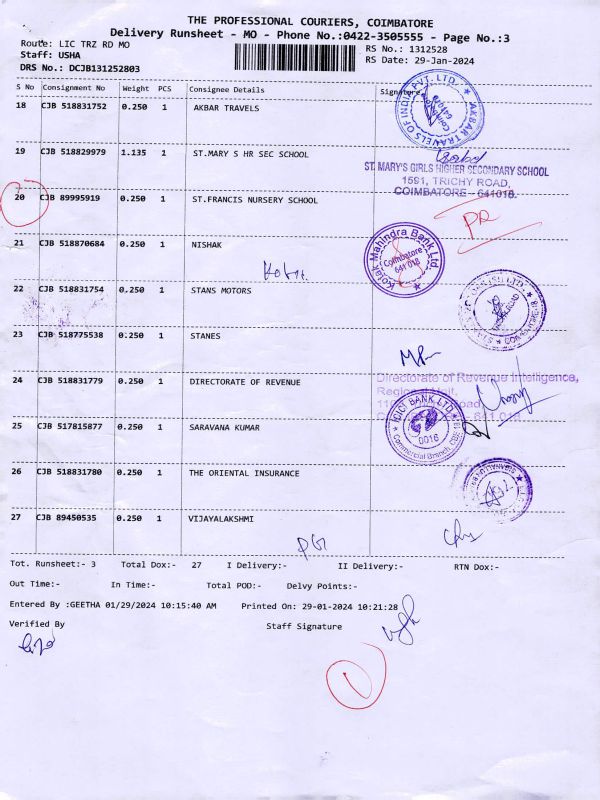 THE PROFESSIONAL COURIERS, COIMBATORE
Delivery Runsheet - MO - Phone No.:0422-3505555 - Page No.:3
Route: LIC TRZ RD MO
RS No.: 1312528
Staff: USHA
RS Date: 29-Jan-2024
DRS No.: DCJB131252803
S No Consignment No Weight PCS Consignee Details Signature
18 CJB 518831752 0.250 1 AKBAR TRAVELS
AKBAR TRAVELS OF INDIA PVT. LTD.
19 CJB 518829979 1.135 1 ST.MARY S HR SEC SCHOOL
ST. MARY'S GIRLS HIGHER SECONDARY SCHOOL
1591, TRICHY ROAD,
COIMBATORE - 641018.
20 CJB 89995919 0.250 1 ST.FRANCIS NURSERY SCHOOL
21 CJB 518870684 0.250 1 NISHAK
Kotak Mahindra Bank Ltd.
Coimbatore
641 018
22 CJB 518831754 0.250 1 STANS MOTORS
23 CJB 518775538 0.250 1 STANES
24 CJB 518831779 0.250 1 DIRECTORATE OF REVENUE
Directorate of Revenue Intelligence,
25 CJB 517815877 0.250 1 SARAVANA KUMAR
ICICI BANK LTD.
0016
Commercial Branch, CBE
26 CJB 518831780 0.250 1 THE ORIENTAL INSURANCE
27 CJB 89450535 0.250 1 VIJAYALAKSHMI
Tot. Runsheet:- 3 Total Dox:- 27 I Delivery:- II Delivery:- RTN Dox:-
Out Time:- In Time:- Total POD:- Delvy Points:-
Entered By :GEETHA 01/29/2024 10:15:40 AM Printed On: 29-01-2024 10:21:28
Verified By Staff Signature